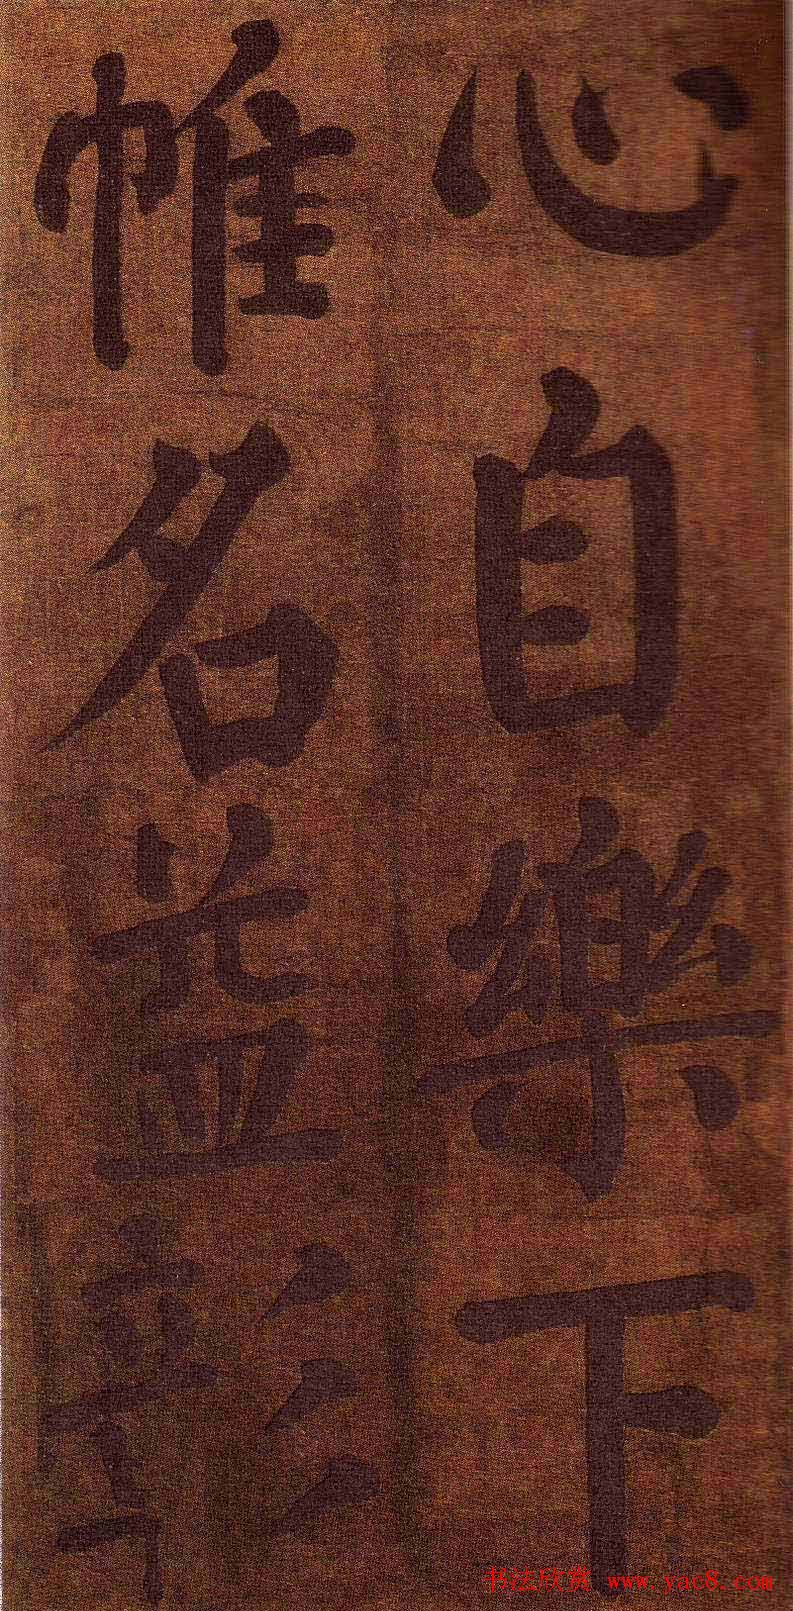 心自樂下
帷名益彰
书法欣赏 www.yac8.com